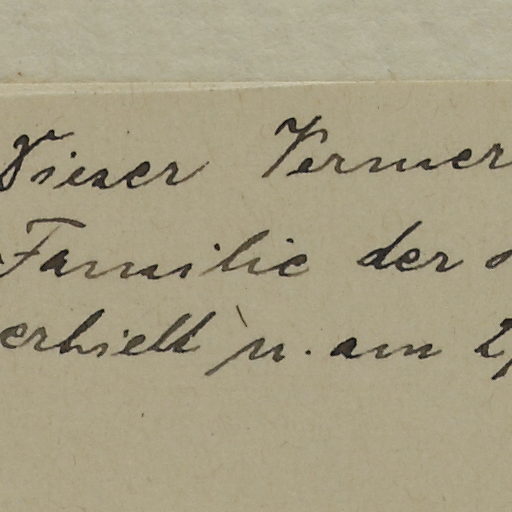 Dieser Vermer
Familie der
erhielt u. am 2